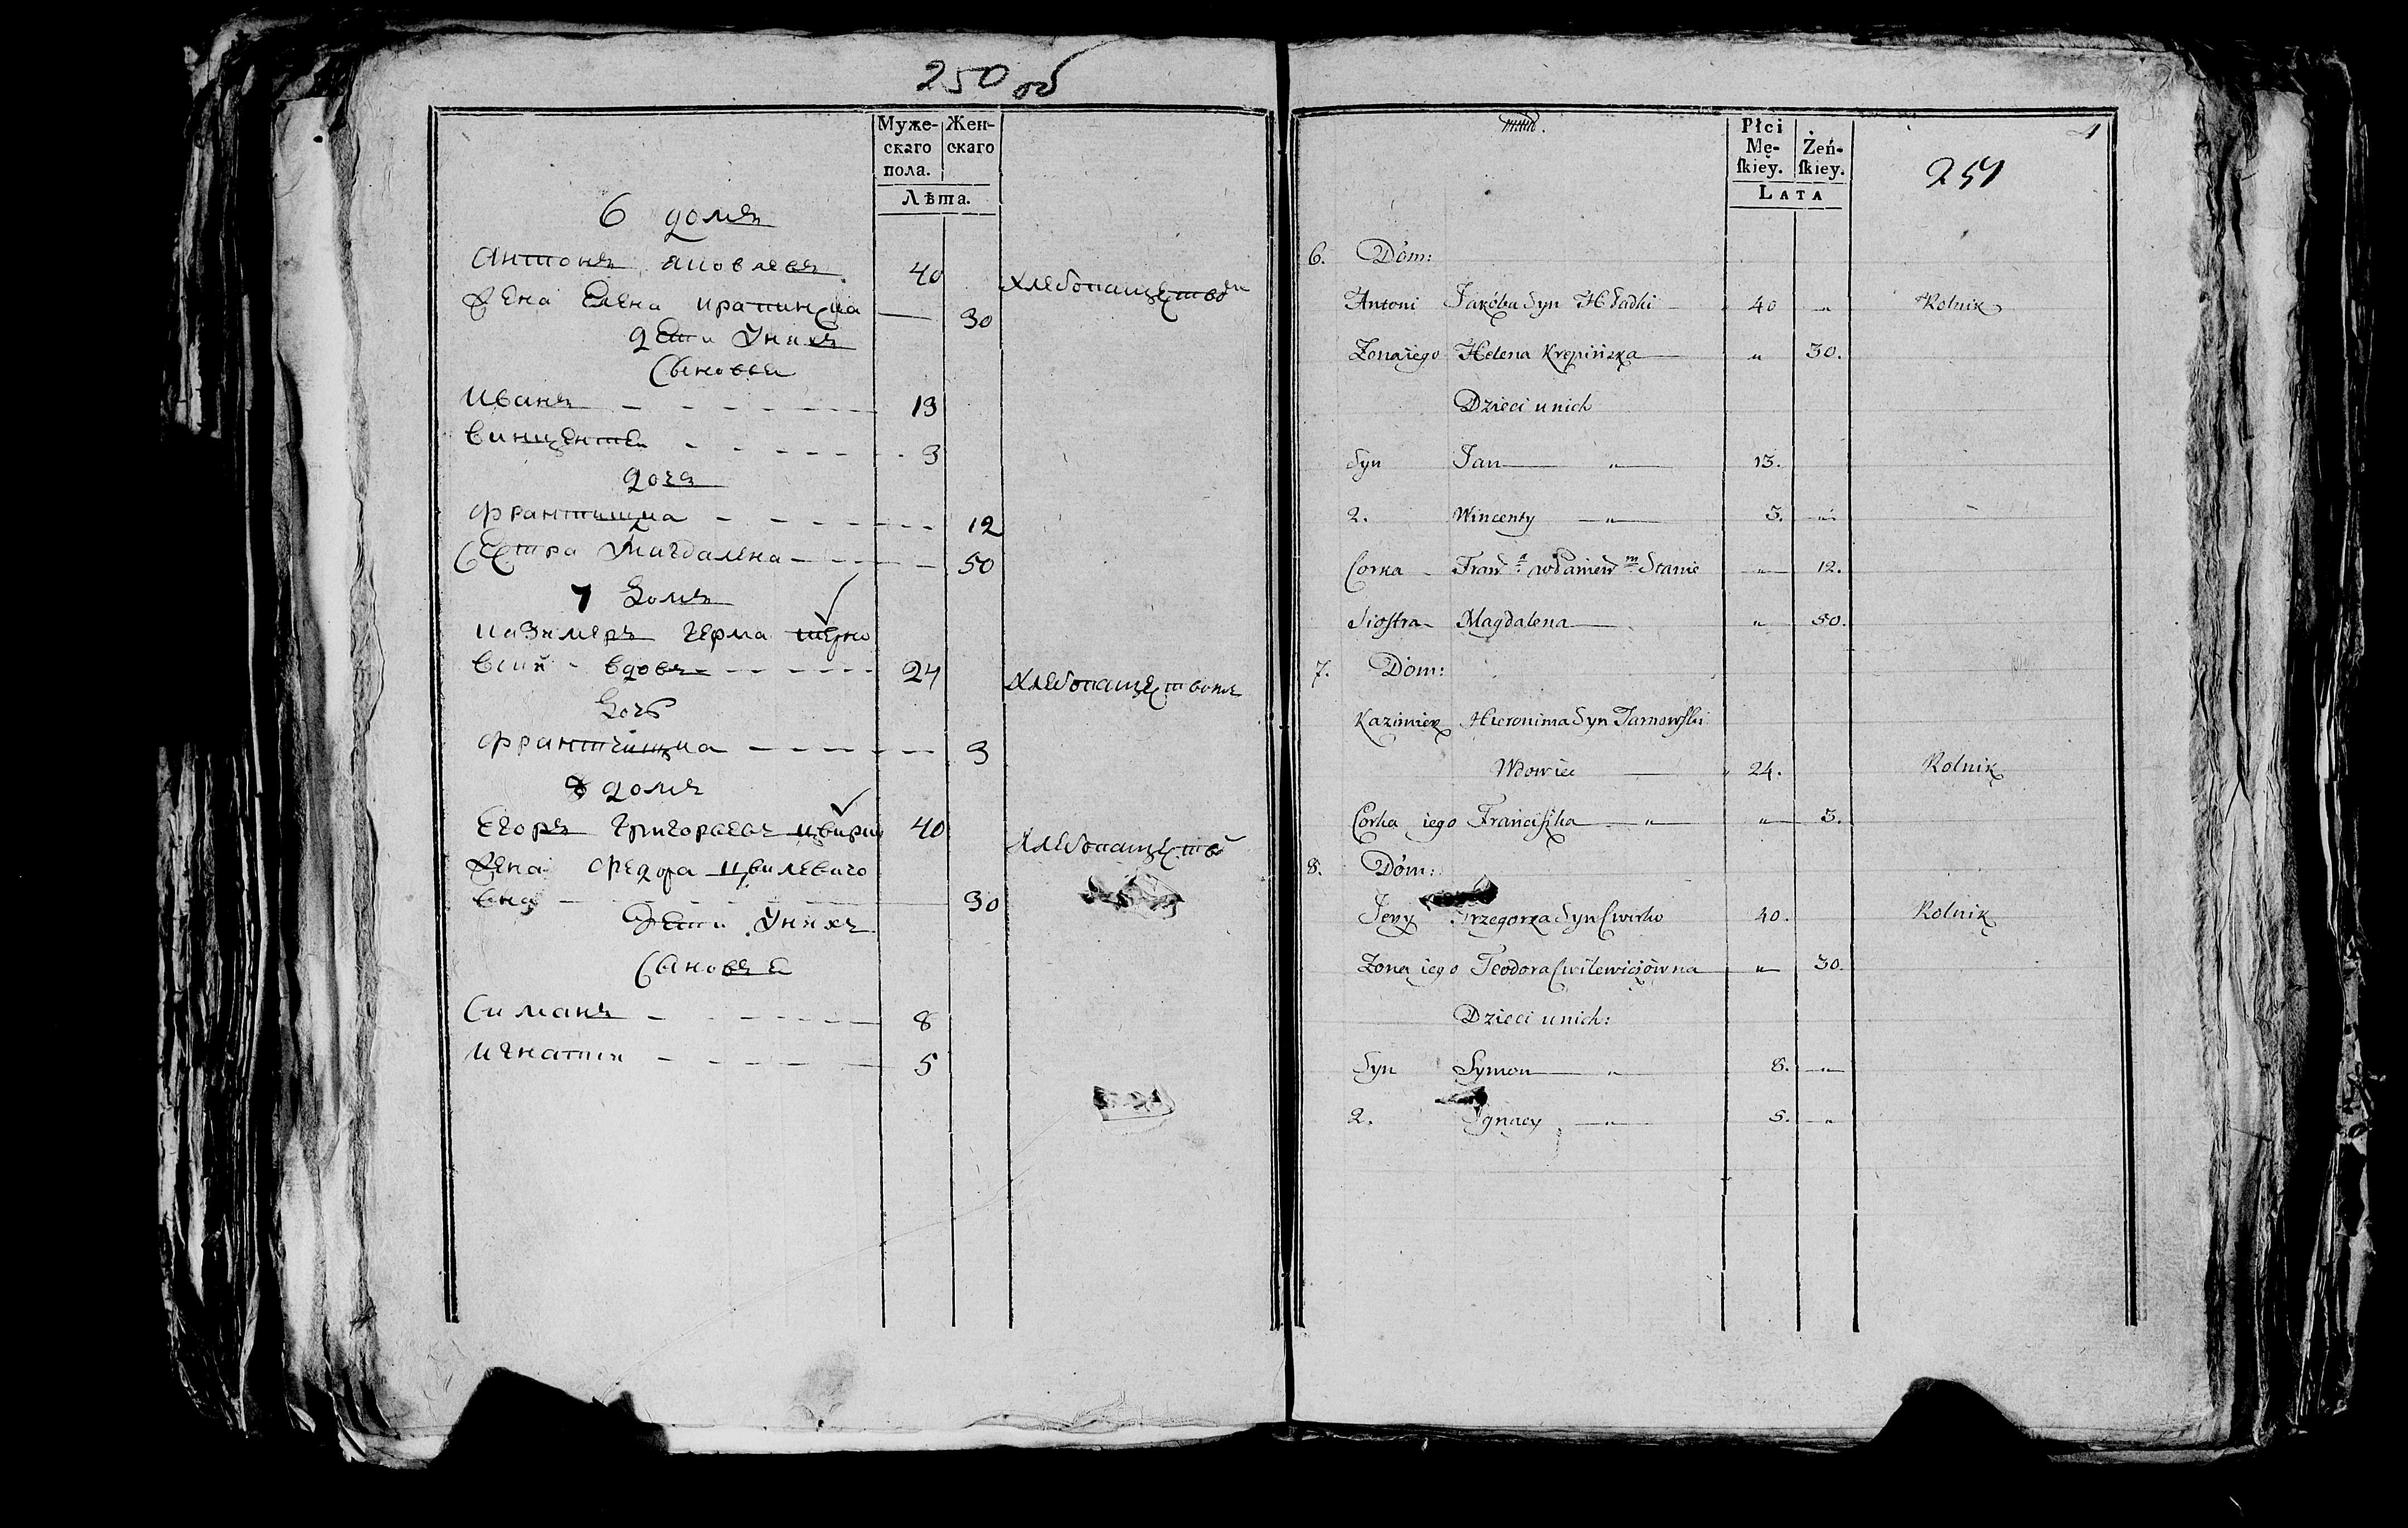 250 об
Муже- Жен-
скаго скаго
пола.
Лѣта.
6 домъ
Антонъ Яковлевъ 40 хлебопашество
Жена Елена Крапинска 30
дети у нихъ
Сыновья
Иванъ 13
Винценти 3
дочь
Францишка 12
Сестра Магдалена 50
7 домъ
Казимеръ Герма терно
вски вдовъ 24 хлебопашествомъ
дочь
Францишка 3
8 домъ
Егоръ Григорьевъ Цвирко 40 хлебопашество
Жена Федора Цвилевичо
вна 30
дети у нихъ
Сыновья
Симанъ 8
Игнатии 5
Płci
Mę- Żeń-
ſkiey. ſkiey.
251
LATA
6. Dom:
Antoni Jakóba Syn Hładki 40 „ Rolnik
Zona iego Helena Krepińska „ 30.
Dzieci u nich
Syn Jan „ 13.
2. Wincenty „ 3. „
Corka Fran w Paniem Stanie „ 12.
Siostra Magdalena „ 50.
7. Dom:
Kazimierz Hieronima Syn Tarnowſki
Wdowiec 24. Rolnik
Corka iego Franciſzka „ „ 3.
8. Dom:
Jerzy Grzegorza Syn Cwirko 40. Rolnik
Zona iego Teodora Cwilewiczówna „ 30.
Dzieci u nich:
Syn Symon „ 8. „
2. Ignacy „ 5. „